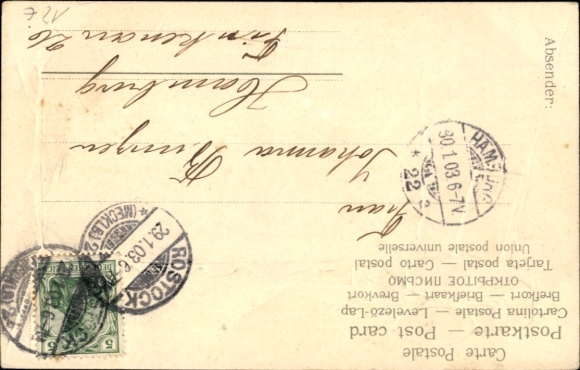 Carte Postale
Postkarte — Post card
Cartolina Postale — Levelező-Lap
Brefkort — Briefkaart — Brevkort
ОТКРЫТОЕ ПИСЬМО
Tarjeta postal — Carto postal
Union postale universelle
ROSTOCK
29.1.03.6-7
*(MECKLB.)2*
5
HAMBURG
30.1.03.6-7V
* 22 a
Frau
Johanna
Hamburg
26
Absender:
12